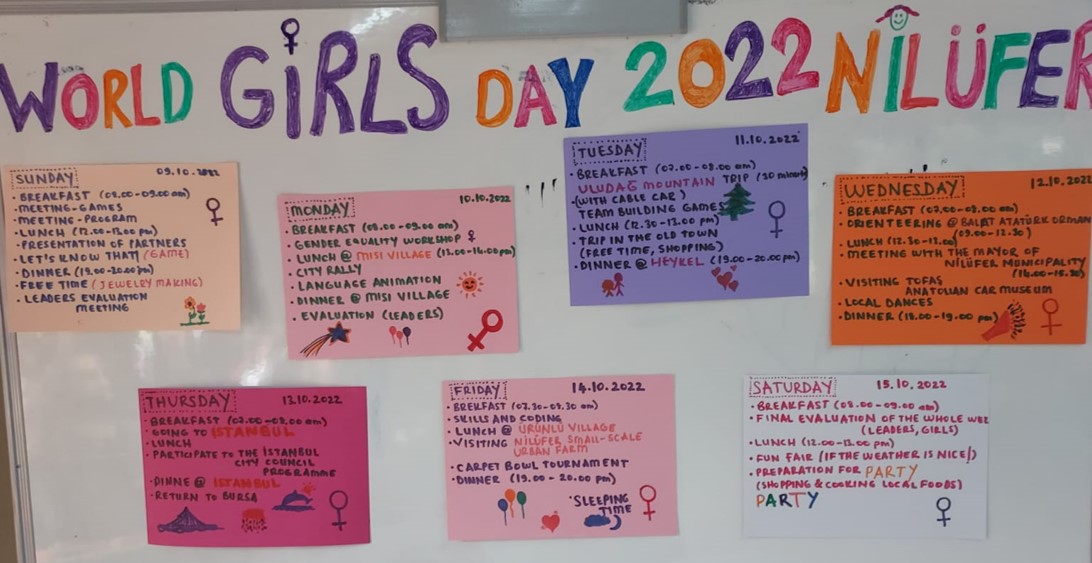 WORLD GiRLS DAY 2022 NİLÜFER
SUNDAY 09.10.2022
· BREAKFAST (08.00-09.00 am)
· MEETING-GAMES
· MEETING-PROGRAM
· LUNCH (12.00-13.00 pm)
· PRESENTATION OF PARTNERS
· LET'S KNOW THAT (GAME)
· DINNER (19.00-20.00 pm)
· FREE TIME (JEWELRY MAKING)
· LEADERS EVALUATION
MEETING
MONDAY 10.10.2022
· BREAKFAST (08.00-09.00 am)
· GENDER EQUALITY WORKSHOP ♀
· LUNCH @ MISI VILLAGE (13.00-14.00 pm)
· CITY RALLY
· LANGUAGE ANIMATION
· DINNER @ MISI VILLAGE
· EVALUATION (LEADERS)
TUESDAY 11.10.2022
· BREAKFAST (07.00-08.00 am)
ULUDAĞ MOUNTAIN TRIP (30 minutes)
(WITH CABLE CAR)
TEAM BUILDING GAMES
· LUNCH (12.30-13.00 pm)
· TRIP IN THE OLD TOWN
(FREE TIME, SHOPPING)
· DINNER @ HEYKEL (19.00-20.00 pm)
WEDNESDAY 12.10.2022
· BREAKFAST (07.00-08.00 am)
· ORIENTEERING @ BALAT ATATÜRK ORMAN
(09.00-12.30)
· LUNCH (12.30-13.00)
· MEETING WITH THE MAYOR OF
NİLÜFER MUNICIPALITY
(14.00-15.30)
· VISITING TOFAS
ANATOLIAN CAR MUSEUM
· LOCAL DANCES
· DINNER (18.00-19.00 pm)
THURSDAY 13.10.2022
· BREAKFAST (07.00-08.00 am)
· GOING TO ISTANBUL
· LUNCH
· PARTICIPATE TO THE İSTANBUL
CITY COUNCIL
PROGRAMME
· DINNE @ ISTANBUL
· RETURN TO BURSA
FRIDAY 14.10.2022
· BREKFAST (07.30-08.30 am)
· SKILLS AND CODING
· LUNCH @ ÜRÜNLÜ VILLAGE
· VISITING NİLÜFER SMALL-SCALE
URBAN FARM
· CARPET BOWL TOURNAMENT
· DINNER (19.00-20.00 pm)
· SLEEPING
TIME
SATURDAY 15.10.2022
· BREAKFAST (08.00-09.00 am)
· FINAL EVALUATION OF THE WHOLE
(LEADERS, GIRLS)
· LUNCH (12.00-13.00 pm)
· FUN FAIR (IF THE WEATHER IS NICE!)
· PREPARATION FOR PARTY
(SHOPPING & COOKING LOCAL FOODS)
PARTY